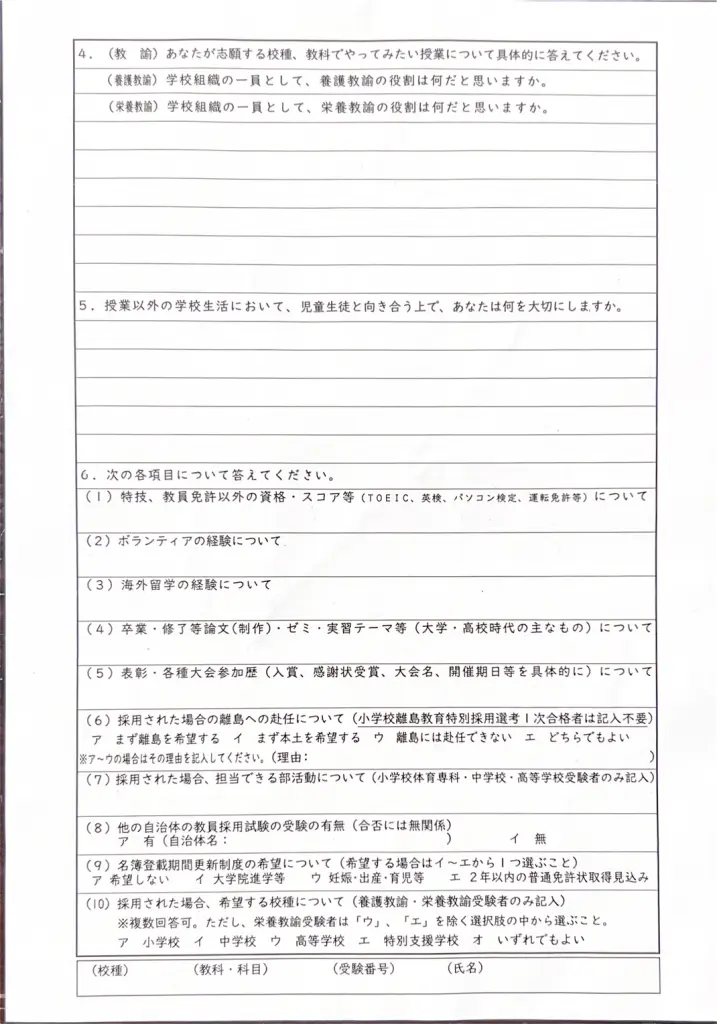 4．（教　諭）あなたが志願する校種、教科でやってみたい授業について具体的に答えてください。
（養護教諭）学校組織の一員として、養護教諭の役割は何だと思いますか。
（栄養教諭）学校組織の一員として、栄養教諭の役割は何だと思いますか。
5．授業以外の学校生活において、児童生徒と向き合う上で、あなたは何を大切にしますか。
6．次の各項目について答えてください。
（1）特技、教員免許以外の資格・スコア等（TOEIC、英検、パソコン検定、運転免許等）について
（2）ボランティアの経験について
（3）海外留学の経験について
（4）卒業・修了等論文（制作）・ゼミ・実習テーマ等（大学・高校時代の主なもの）について
（5）表彰・各種大会参加歴（入賞、感謝状受賞、大会名、開催期日等を具体的に）について
（6）採用された場合の離島への赴任について（小学校離島教育特別採用選考1次合格者は記入不要）
ア　まず離島を希望する　イ　まず本土を希望する　ウ　離島には赴任できない　エ　どちらでもよい
※ア～ウの場合はその理由を記入してください。（理由：　　　　　　　　　　）
（7）採用された場合、担当できる部活動について（小学校体育専科・中学校・高等学校受験者のみ記入）
（8）他の自治体の教員採用試験の受験の有無（合否には無関係）
ア　有（自治体名：　　　　　　　　　　）　　　イ　無
（9）名簿登載期間更新制度の希望について（希望する場合はイ～エから1つ選ぶこと）
ア 希望しない　イ 大学院進学等　ウ 妊娠・出産・育児等　エ 2年以内の普通免許状取得見込み
（10）採用された場合、希望する校種について（養護教諭・栄養教諭受験者のみ記入）
※複数回答可。ただし、栄養教諭受験者は「ウ」、「エ」を除く選択肢の中から選ぶこと。
ア　小学校　イ　中学校　ウ　高等学校　エ　特別支援学校　オ　いずれでもよい
（校種）　　　（教科・科目）　　　（受験番号）　　　（氏名）